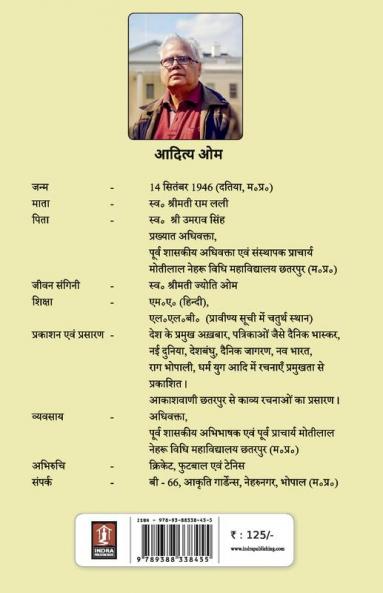 आदित्य ओम
जन्म - 14 सितंबर 1946 (दतिया, म॰प्र॰)
माता - स्व॰ श्रीमती राम लली
पिता - स्व॰ श्री उमराव सिंह
प्रख्यात अधिवक्ता,
पूर्व शासकीय अधिवक्ता एवं संस्थापक प्राचार्य
मोतीलाल नेहरू विधि महाविद्यालय छतरपुर (म॰प्र॰)
जीवन संगिनी - स्व॰ श्रीमती ज्योति ओम
शिक्षा - एम॰ए॰ (हिन्दी),
एल॰एल॰बी॰ (प्रावीण्य सूची में चतुर्थ स्थान)
प्रकाशन एवं प्रसारण - देश के प्रमुख अख़बार, पत्रिकाओं जैसे दैनिक भास्कर,
नई दुनिया, देशबंधु, दैनिक जागरण, नव भारत,
राग भोपाली, धर्म युग आदि में रचनाएँ प्रमुखता से
प्रकाशित।
आकाशवाणी छतरपुर से काव्य रचनाओं का प्रसारण।
व्यवसाय - अधिवक्ता,
पूर्व शासकीय अभिभाषक एवं पूर्व प्राचार्य मोतीलाल
नेहरू विधि महाविद्यालय छतरपुर (म॰प्र॰)
अभिरुचि - क्रिकेट, फुटबाल एवं टेनिस
संपर्क - बी - 66, आकृति गार्डेन्स, नेहरुनगर, भोपाल (म॰प्र॰)
ISBN - 978-93-88538-43-5
INDRA
₹ : 125/-
www.indrapublishing.com
9 789388 538435